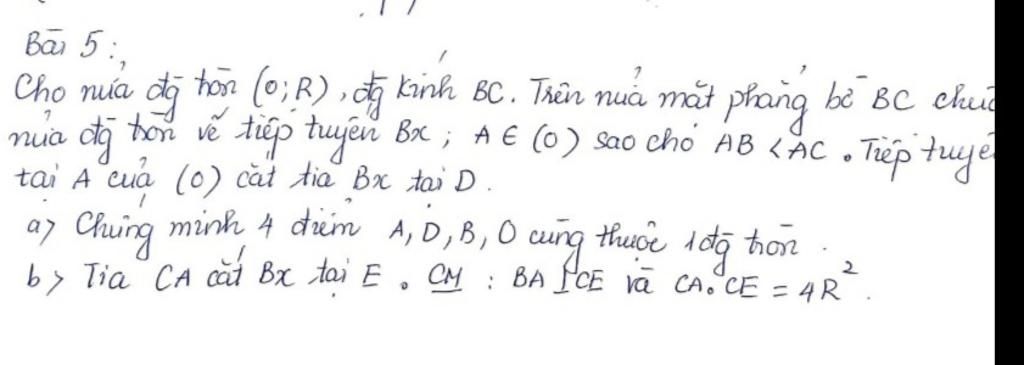 Bài 5 :
Cho nửa đg tròn (O; R), đg kính BC. Trên nửa mặt phẳng bờ BC
nửa đg tròn vẽ tiếp tuyến Bx ; A ∈ (O) sao cho AB < AC . Tiếp
tại A của (O) cắt tia Bx tại D .
a> Chứng minh 4 điểm A, D, B, O cùng thuộc 1 đg tròn .
b> Tia CA cắt Bx tại E . CM : BA ⊥ CE và CA.CE = 4R² .